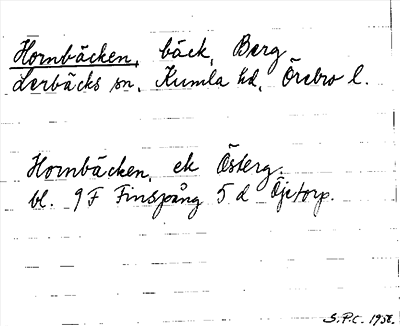 Hornbäcken, bäck, Berg
Lerbäcks sn, Kumla hd, Örebro l.
Hornbäcken, ek Österg.
bl. 9F Finspång 5d Öjetorp.
S.P.C. 1958.